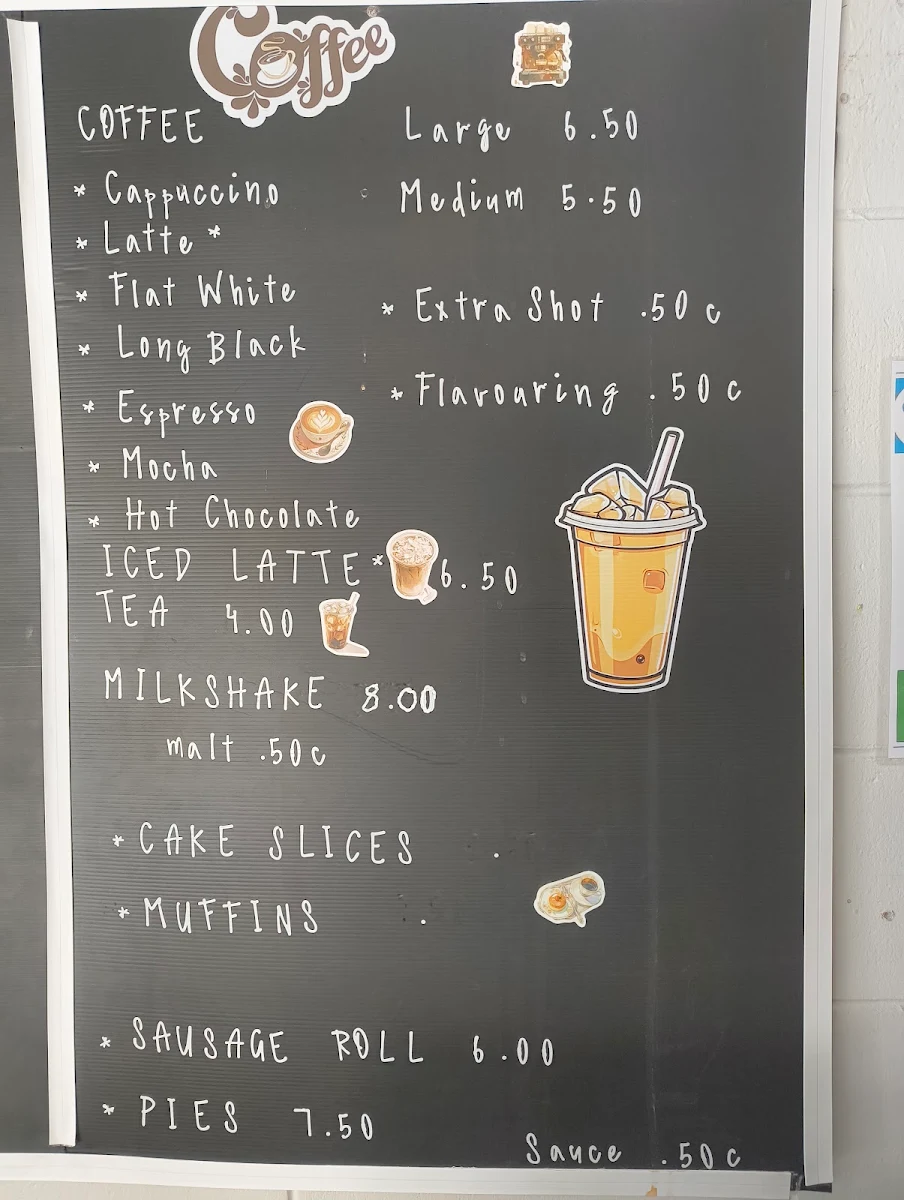 Coffee
COFFEE Large 6.50
* Cappuccino Medium 5.50
* Latte *
* Flat White * Extra Shot .50 c
* Long Black
* Espresso * Flavouring .50 c
* Mocha
* Hot Chocolate
ICED LATTE * 6.50
TEA 4.00
MILKSHAKE 8.00
malt .50c
* CAKE SLICES .
* MUFFINS .
* SAUSAGE ROLL 6.00
* PIES 7.50
Sauce .50 c